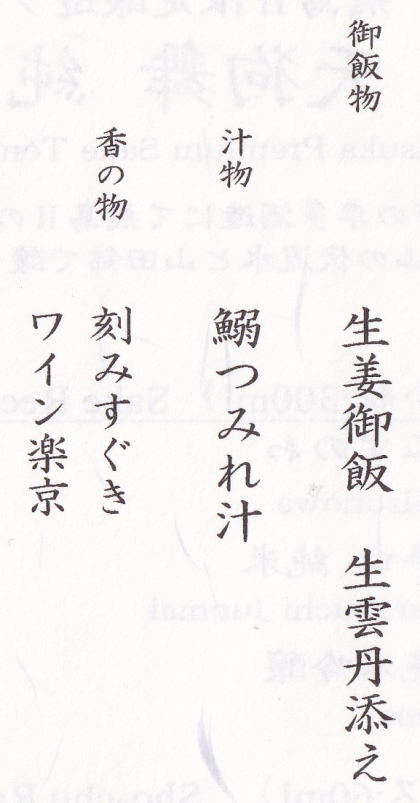 御飯物
生姜御飯　生雲丹添え
汁物
鰯つみれ汁
香の物
刻みすぐき
ワイン楽京